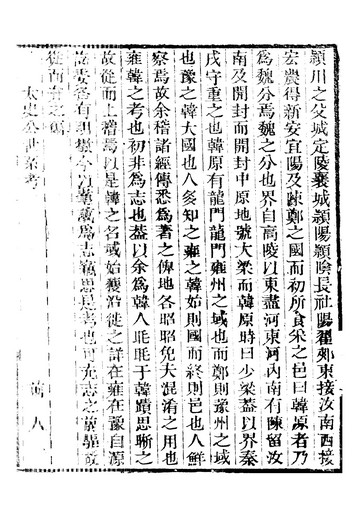 潁川之父城定陵襄城潁陽潁陰長社陽翟郟東接汝南西接
宏農得新安宜陽及陳鄭之國而初所食采之邑曰韓原者乃
為魏分焉魏之分也界自高陵以東盡河東河內南有陳留汝
南及開封而開封中原地號大梁而韓原時曰少梁蓋以界秦
戌守重之也韓原有龍門龍門雍州之域也而鄭則豫州之域
也豫之韓大國也人夋知之雍之韓始則國而終則邑也人鮮
察焉故余稽諸經傳悉為著之俾地各昭昭免夫混淆之用也
雍韓之考也初非為志也蓋以余為韓人眊眊于韓蹟思晰之
故從而上溍焉以是韓之名或始獲沿徙之詳在雍在豫自源
委各有
為志
是考也可充志之
從而
太史公世系考
八